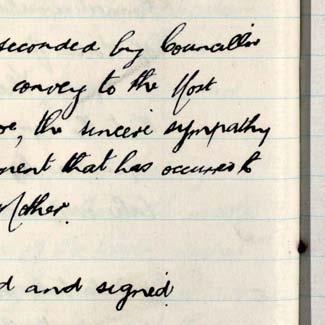 seconded by Councillor
convey to the Most
re, the sincere sympathy
ment that has occurred to
Mother.
d and signed